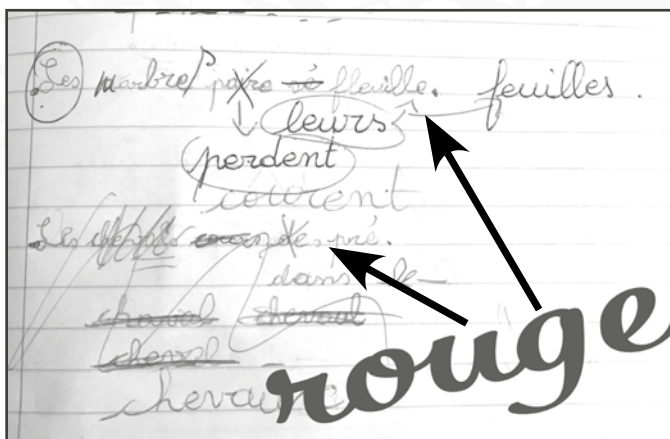 Les marbre poire sé fleuille. feuilles.
leurs
perdent
courent
Les pré.
dans le
cheval chevaul
cheval
chevaux
rouge